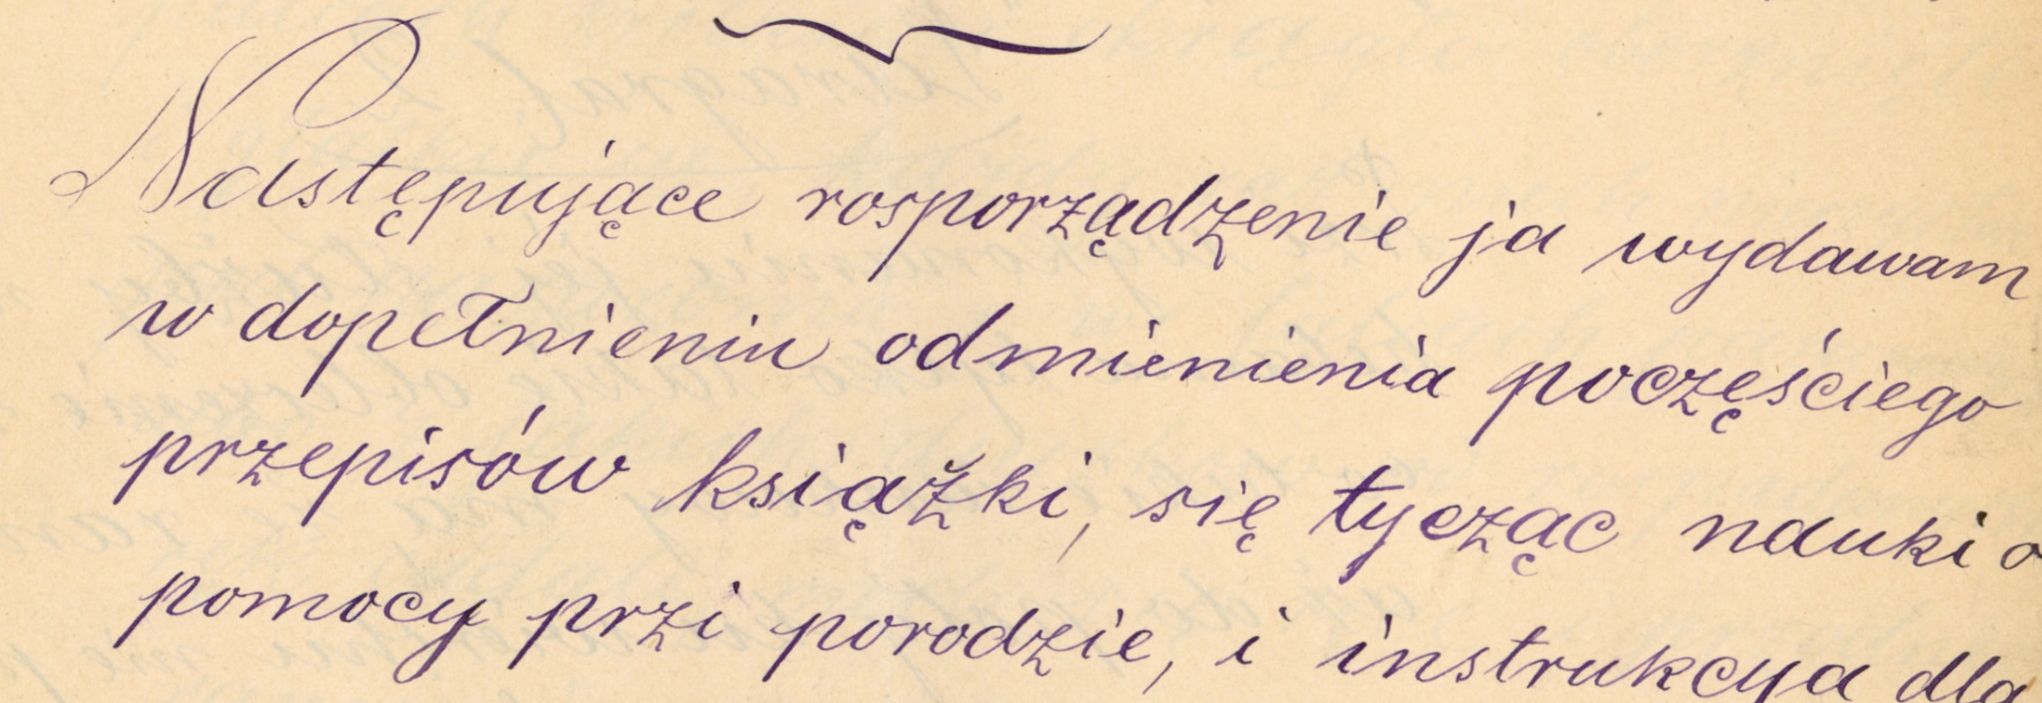 Następujące rosporządzenie ja wydawam
w dopełnieniu odmienienia poczęściego
przepisów książki, się tycząc nauki o
pomocy przi porodzie, i instrukcya dla